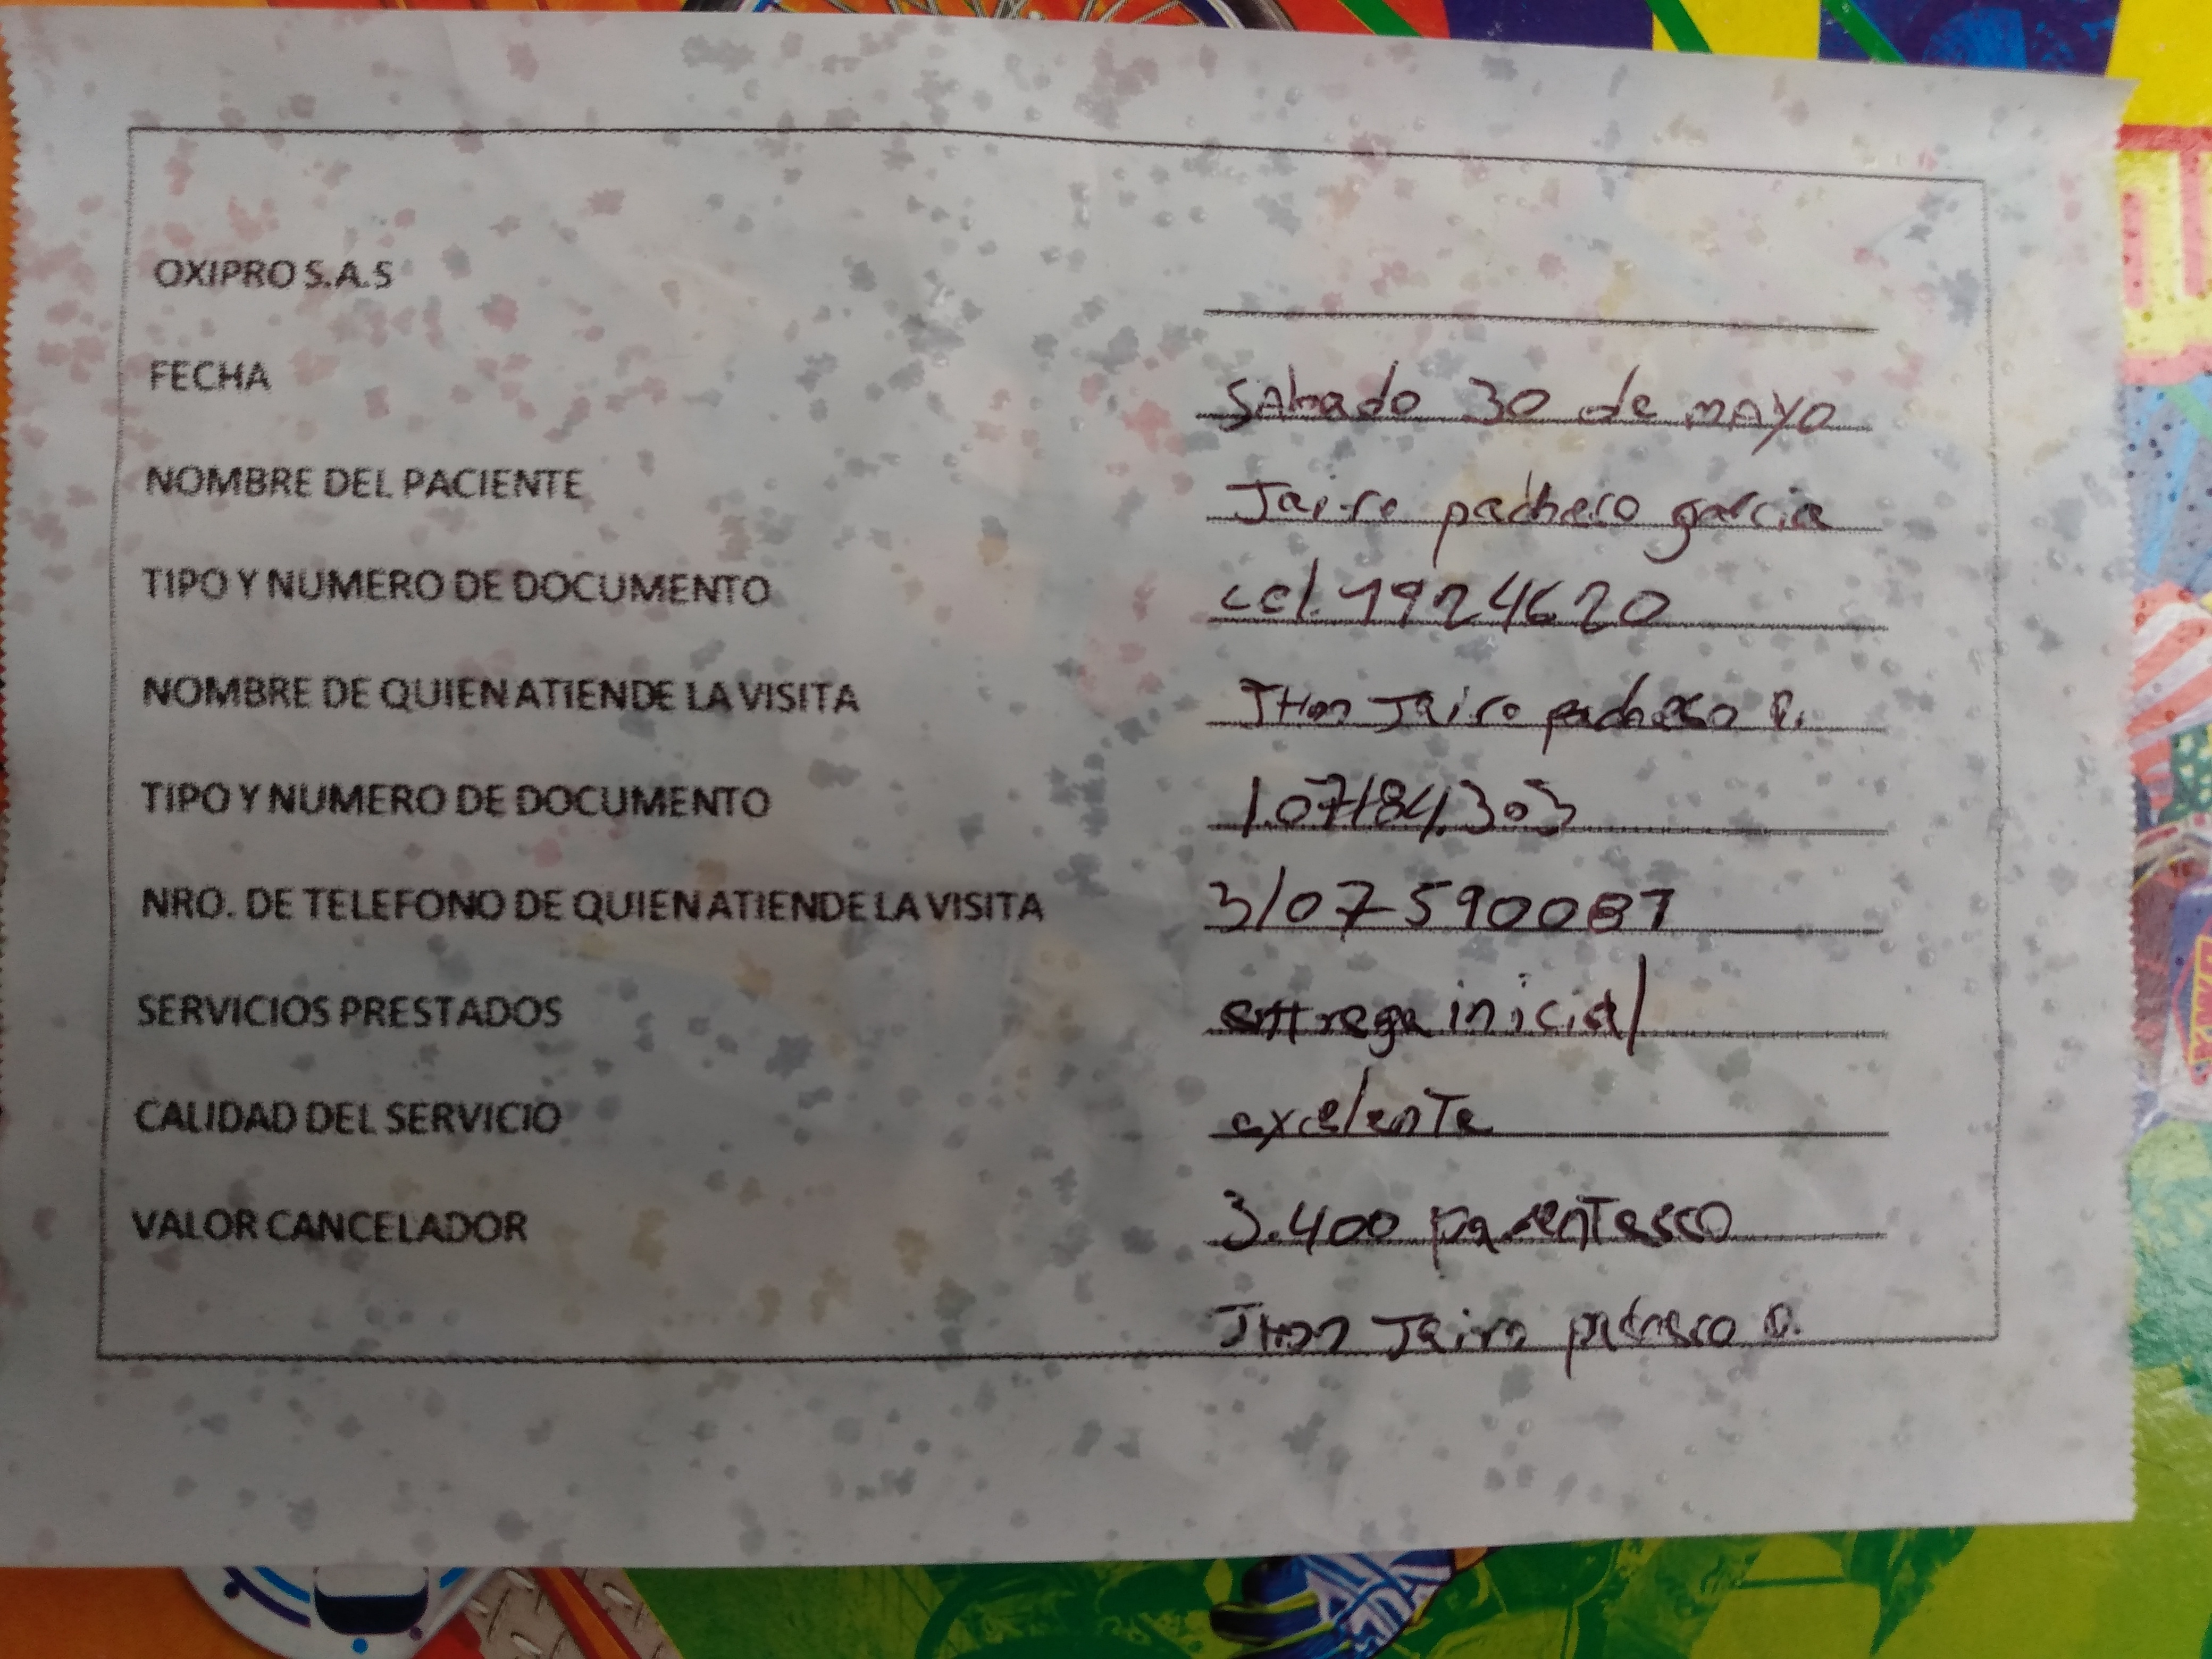 OXIPRO S.A.S
FECHA Sabado 30 de mAyo
NOMBRE DEL PACIENTE Jairo pacheco garcia
TIPO Y NUMERO DE DOCUMENTO ccl. 1924620
NOMBRE DE QUIEN ATIENDE LA VISITA JHon Jairo pacheco
TIPO Y NUMERO DE DOCUMENTO
NRO. DE TELEFONO DE QUIEN ATIENDE LA VISITA 3107590087
SERVICIOS PRESTADOS entrega inicial
CALIDAD DEL SERVICIO exelente
VALOR CANCELADOR 3.400 parentesco
JHon Jairo pacheco